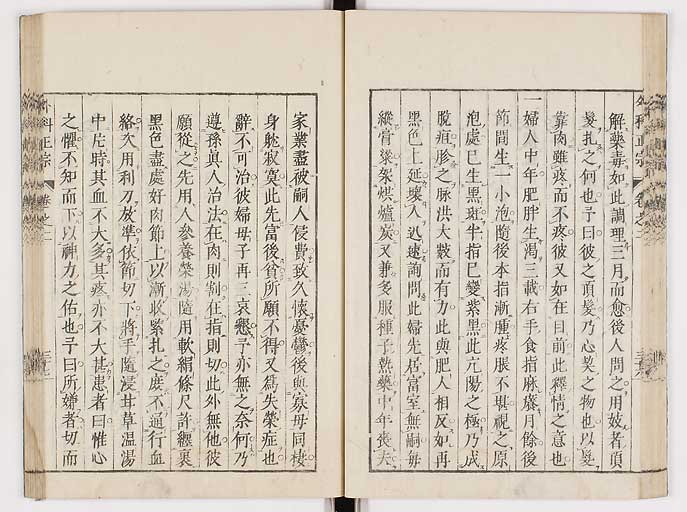 解藥毒如此調理三月而愈後人問之用妓者頂
髮扎之何也予曰彼之頂髮乃心契之物也以髮
靠肉雖疼而不疼彼又如在目前此釋情之意也
一婦人中年肥胖生渴三載右手食指麻癢月餘後
節間生一小泡隨後本指漸腫疼脹不堪視之原
泡處已生黑斑半指已變紫黑此亢陽之極乃成
脫疽診之脉洪大數而有力此與肥人相反如再
黑色上延壞人必速詢問此婦先居富室無嗣每
縱嘗粱架烘爐炭又兼多服種子熱藥中年喪夫
家業盡被嗣人侵費致久懷憂鬱後與寡母同棲
身耽寂寞此先富後貧所願不得又為失榮症也
辭不可治彼婦母子再三哀懇予亦無之奈何乃
遵孫真人治法在肉則割在指則切此外無他彼
願從之先用人參養榮湯隨用軟絹條尺許纏裹
黑色盡處好肉節上以漸收緊扎之庶不通行血
絡次用利刀放準依節切下將手隨浸甘草温湯
中片時其血不大多其疼亦不大甚患者曰惟心
之懼不知而下以神力之佑也予曰所嫌者切而
外科正宗
卷之二